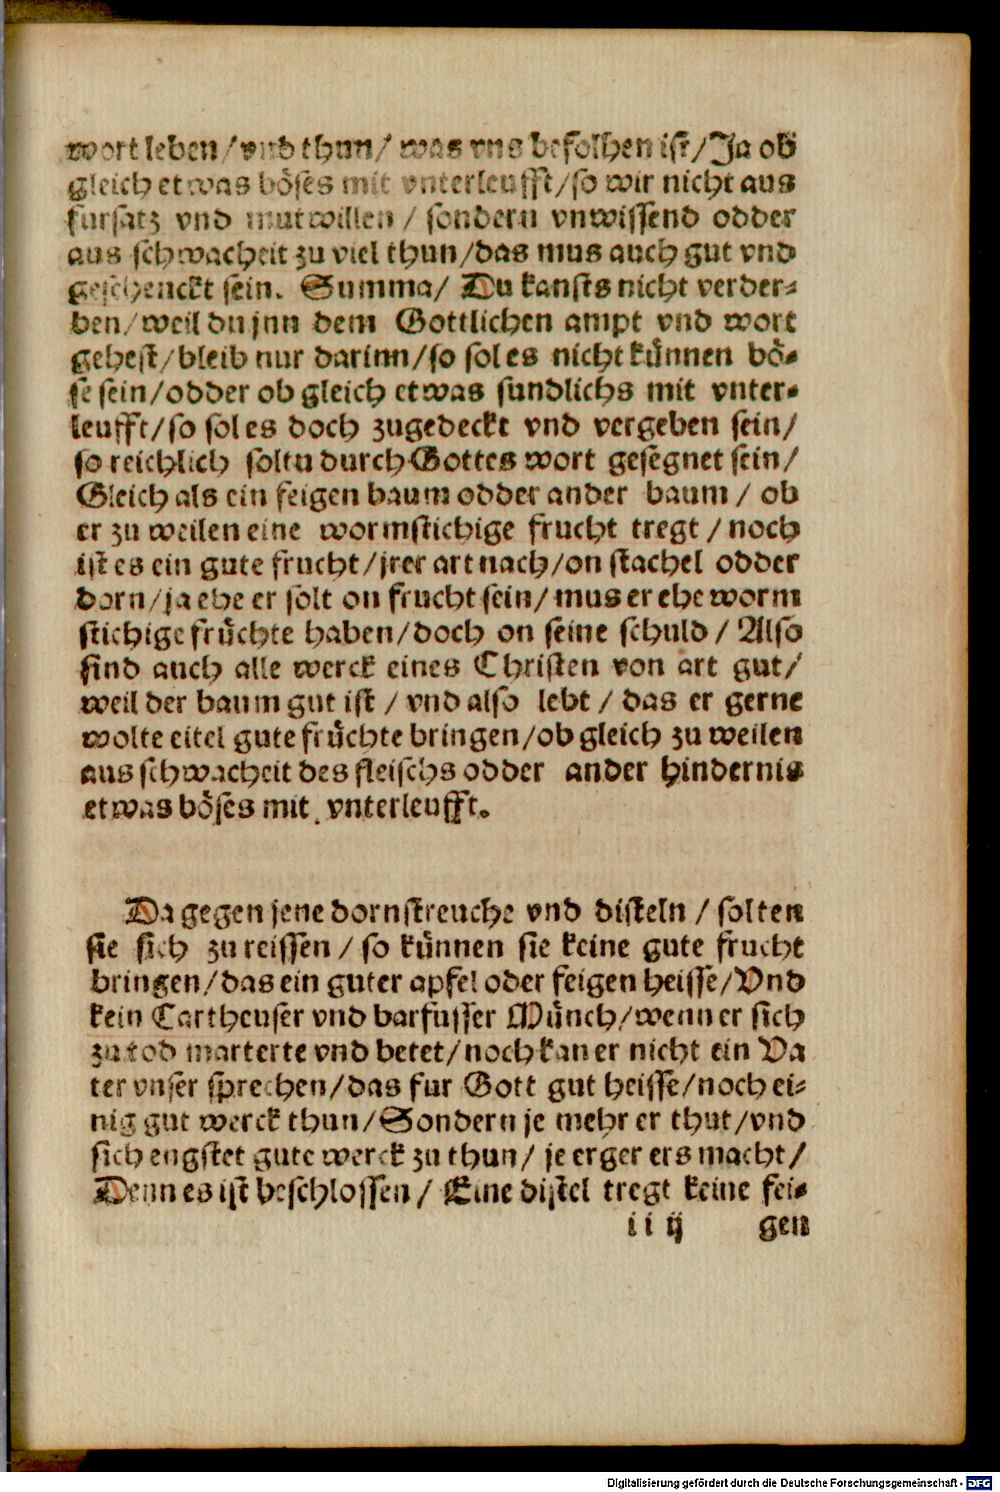 wort leben / vnd thun / was vns befolhen ist / Ja ob
gleich etwas böses mit vnterleufft / so wir nicht aus
fursatz vnd mutwillen / sondern vnwissend odder
aus schwacheit zu viel thun / das mus auch gut vnd
geschenckt sein. Summa / Du kansts nicht verder⸗
ben / weil du jnn dem Gottlichen ampt vnd wort
gehest / bleib nur darinn / so sol es nicht künnen bö⸗
se sein / odder ob gleich etwas sundlichs mit vnter⸗
leufft / so sol es doch zugedeckt vnd vergeben sein /
so reichlich soltu durch Gottes wort gesegnet sein /
Gleich als ein feigen baum odder ander baum / ob
er zu weilen eine wormstichige frucht tregt / noch
ist es ein gute frucht / jrer art nach / on stachel odder
dorn / ja ehe er solt on frucht sein / mus er ehe worm
stichige früchte haben / doch on seine schuld / Also
sind auch alle werck eines Christen von art gut /
weil der baum gut ist / vnd also lebt / das er gerne
wolte eitel gute früchte bringen / ob gleich zu weilen
aus schwacheit des fleischs odder ander hindernis
etwas böses mit vnterleufft.
Da gegen jene dornstreuche vnd disteln / solten
sie sich zu reissen / so künnen sie keine gute frucht
bringen / das ein guter apfel oder feigen heisse / Vnd
kein Cartheuser vnd barfusser Münch / wenn er sich
zu tod marterte vnd betet / noch kan er nicht ein Va
ter vnser sprechen / das fur Gott gut heisse / noch ei⸗
nig gut werck thun / Sondern je mehr er thut / vnd
sich engstet gute werck zu thun / je erger ers macht /
Denn es ist beschlossen / Eine distel tregt keine fei⸗
i i ij gen
Digitalisierung gefördert durch die Deutsche Forschungsgemeinschaft - DFG